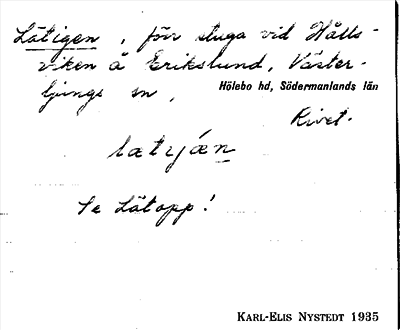 Lätigen, förr stuga vid Hålls-
viken å Erikslund, Väster-
ljungs sn, Hölebo hd, Södermanlands län
Rivet.
lætıján
Se Lätopp!
KARL-ELIS NYSTEDT 1935